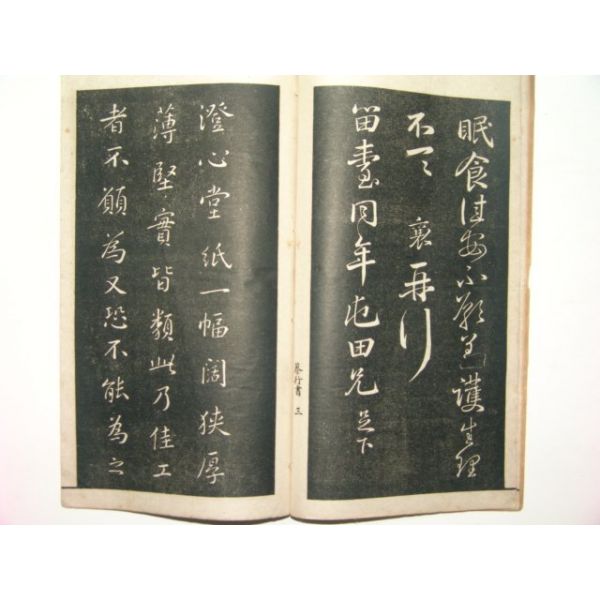 眠食佳安不護生理
不一一 襄再拜
留臺同年屯田兄足下
蔡行書 三
澄心堂紙一幅闊狹厚
薄堅實皆類此乃佳工
者不願為又恐不能為之